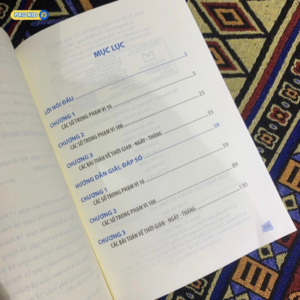 MỤC LỤC
LỜI NÓI ĐẦU 3
CHƯƠNG 1
CÁC SỐ TRONG PHẠM VI 10 5
CHƯƠNG 2
CÁC SỐ TRONG PHẠM VI 100 35
CHƯƠNG 3
CÁC BÀI TOÁN VỀ THỜI GIAN - NGÀY - THÁNG 59
HƯỚNG DẪN GIẢI, ĐÁP SỐ 59
CHƯƠNG 1
CÁC SỐ TRONG PHẠM VI 10 89
CHƯƠNG 2
CÁC SỐ TRONG PHẠM VI 100 130
CHƯƠNG 3
CÁC BÀI TOÁN VỀ THỜI GIAN - NGÀY - THÁNG